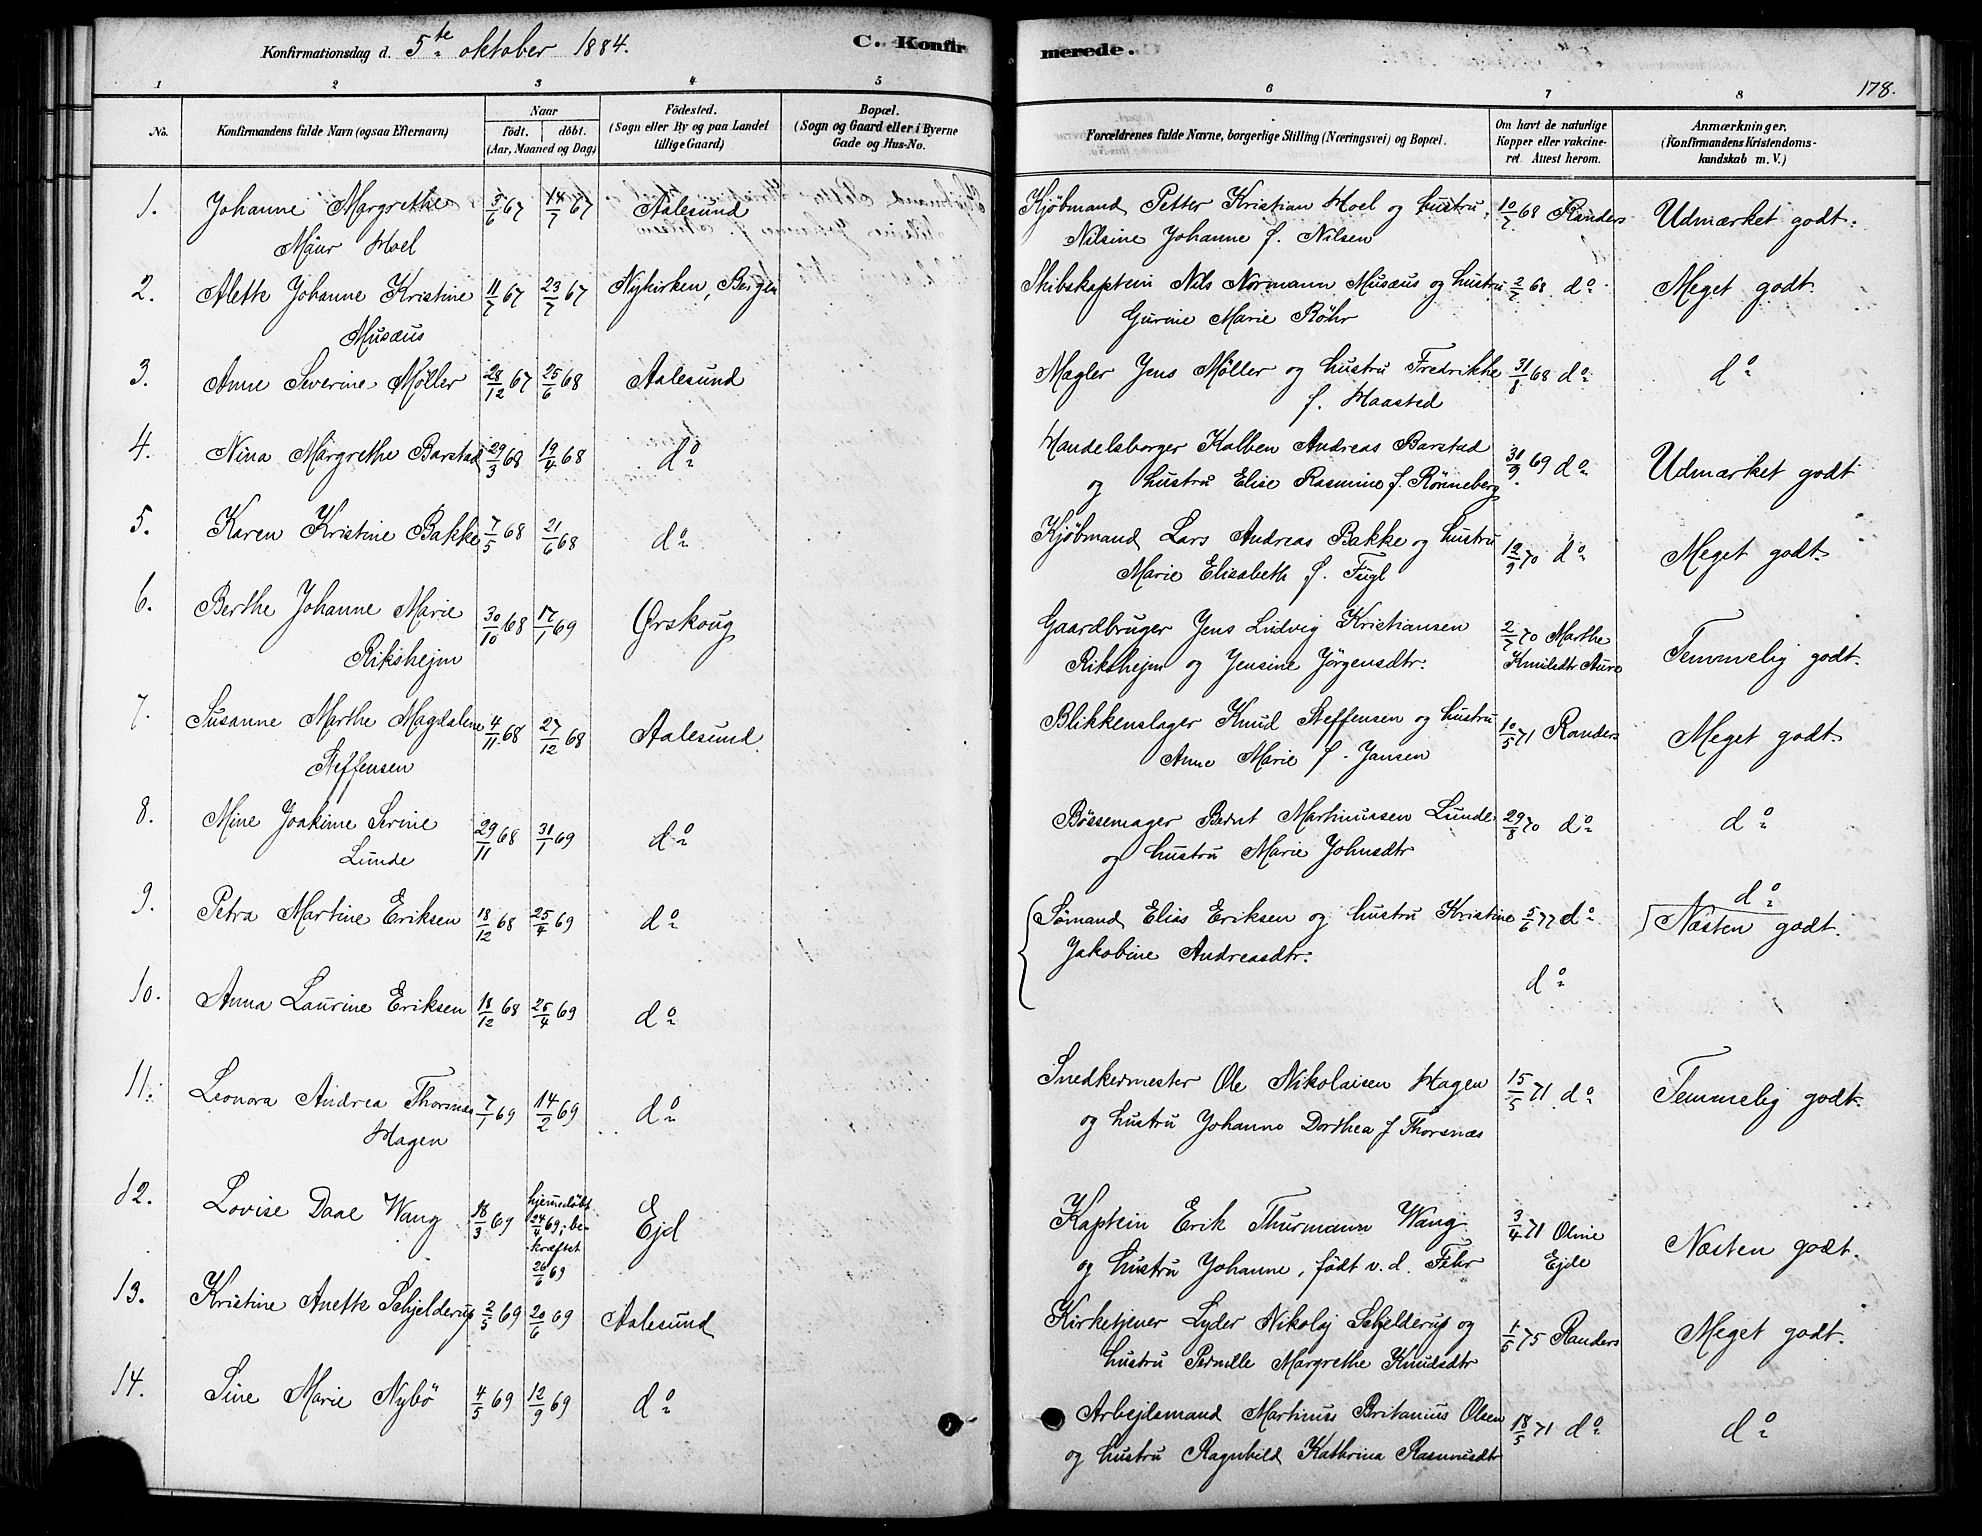 Konfirmationsdag d. 5te oktober 1884. C. Konfirmerede. 178.
1 2 3 4 5 6 7 8
No. Konfirmandens fulde Navn (ogsaa Efternavn) Naar født. døbt. (Aar, Maaned og Dag) Födested. (Sogn eller By og paa Landet tillige Gaard) Bopæl. (Sogn og Gaard eller i Byerne Gade og Hus-No. Forældrenes fulde Navne, borgerlige Stilling (Næringsvei) og Bopæl. Om havt de naturlige Kopper eller vakcineret. Attest herom. Anmærkninger. (Konfirmandens Kristendomskundskab m. V.)
1. Johanne Margrethe 3/6 67 14/7 67 Aalesund Kjöbmand Petter Kristian Hoel og hustru 10/7 68 Randers Udmærket godt.
Maur Hoel Nilsine Johanne f. Nilsen
2. Alette Johanne Kristine 11/7 67 23/7 67 Nykirken, Bergen Skibskaptein Nils Normann Musæus og hustru 2/7 68 do Meget godt.
Musæus Gurine Marie Röhr
3. Anne Severine Møller 28/12 67 25/6 68 Aalesund Mægler Jens Møller og hustru Fredrikke 31/8 68 do do
f. Haasted
4. Nina Margrethe Barstad 29/3 68 19/4 68 do Handelsborger Kolben Andreas Barstad 31/9 69 do Udmærket godt
og hustru Elise Rasmine f. Rönneberg
5. Karen Kristine Bakke 7/5 68 21/6 68 do Kjöbmand Lars Andreas Bakke og hustru 12/9 70 do Meget godt.
Marie Elisabeth f. Fugl
6. Berthe Johanne Marie 30/10 68 17/1 69 Ørskoug Gaardbruger Jens Ludvig Kristiansen 2/7 70 Marthe Temmelig godt.
Rikshejm Rikshejm og Jensine Jörgensdtr. Knudsdtr Aure
7. Susanne Marthe Magdalene 4/11 68 27/12 68 Aalesund. Blikkenslager Knud Steffensen og hustru 10/5 71 Randers Meget godt.
Steffensen Anne Marie f. Jansen
8. Mine Joakime Serine 29/11 68 31/1 69 do Bössemager Bernt Martinussen Lunde 29/8 70 do do
Lunde og hustru Marie Johnsdtr
9. Petra Martine Eriksen 18/12 68 25/4 69 do Sömand Elias Eriksen og hustru Kristine 5/6 77 do do
Jakobine Andreasdtr. Næsten godt.
10. Anna Laurine Eriksen 18/12 68 25/4 69 do do
11. Leonora Andrea Thorsnæs 7/1 69 14/2 69 do Snedkermester Ole Nikolaisen Hagen 15/5 71 do Temmelig godt.
Hagen og hustru Johanne Dorthea f Thorsnæs
12. Lovise Daae Wang 18/3 69 hjemmedöbt 24/4 69; bekræftet 26/6 69 Ejd Kaptein Erik Thurmann Wang 3/4 71 Oline Næsten godt.
og hustru Johanne, födt v. d. Fehr Ejde
13. Kristine Anette Schjelderup 2/5 69 20/6 69 Aalesund Kirketjener Lyder Nikolaj Schjelderup og 1/5 75 Randers Meget godt.
hustru Pernille Margrethe Knudsdtr
14. Sine Marie Nybö 4/5 69 12/9 69 do Arbejdsmand Martinus Britanius Olsen 18/5 71 do do
og hustru Ragnhild Kathrina Rasmusdtr